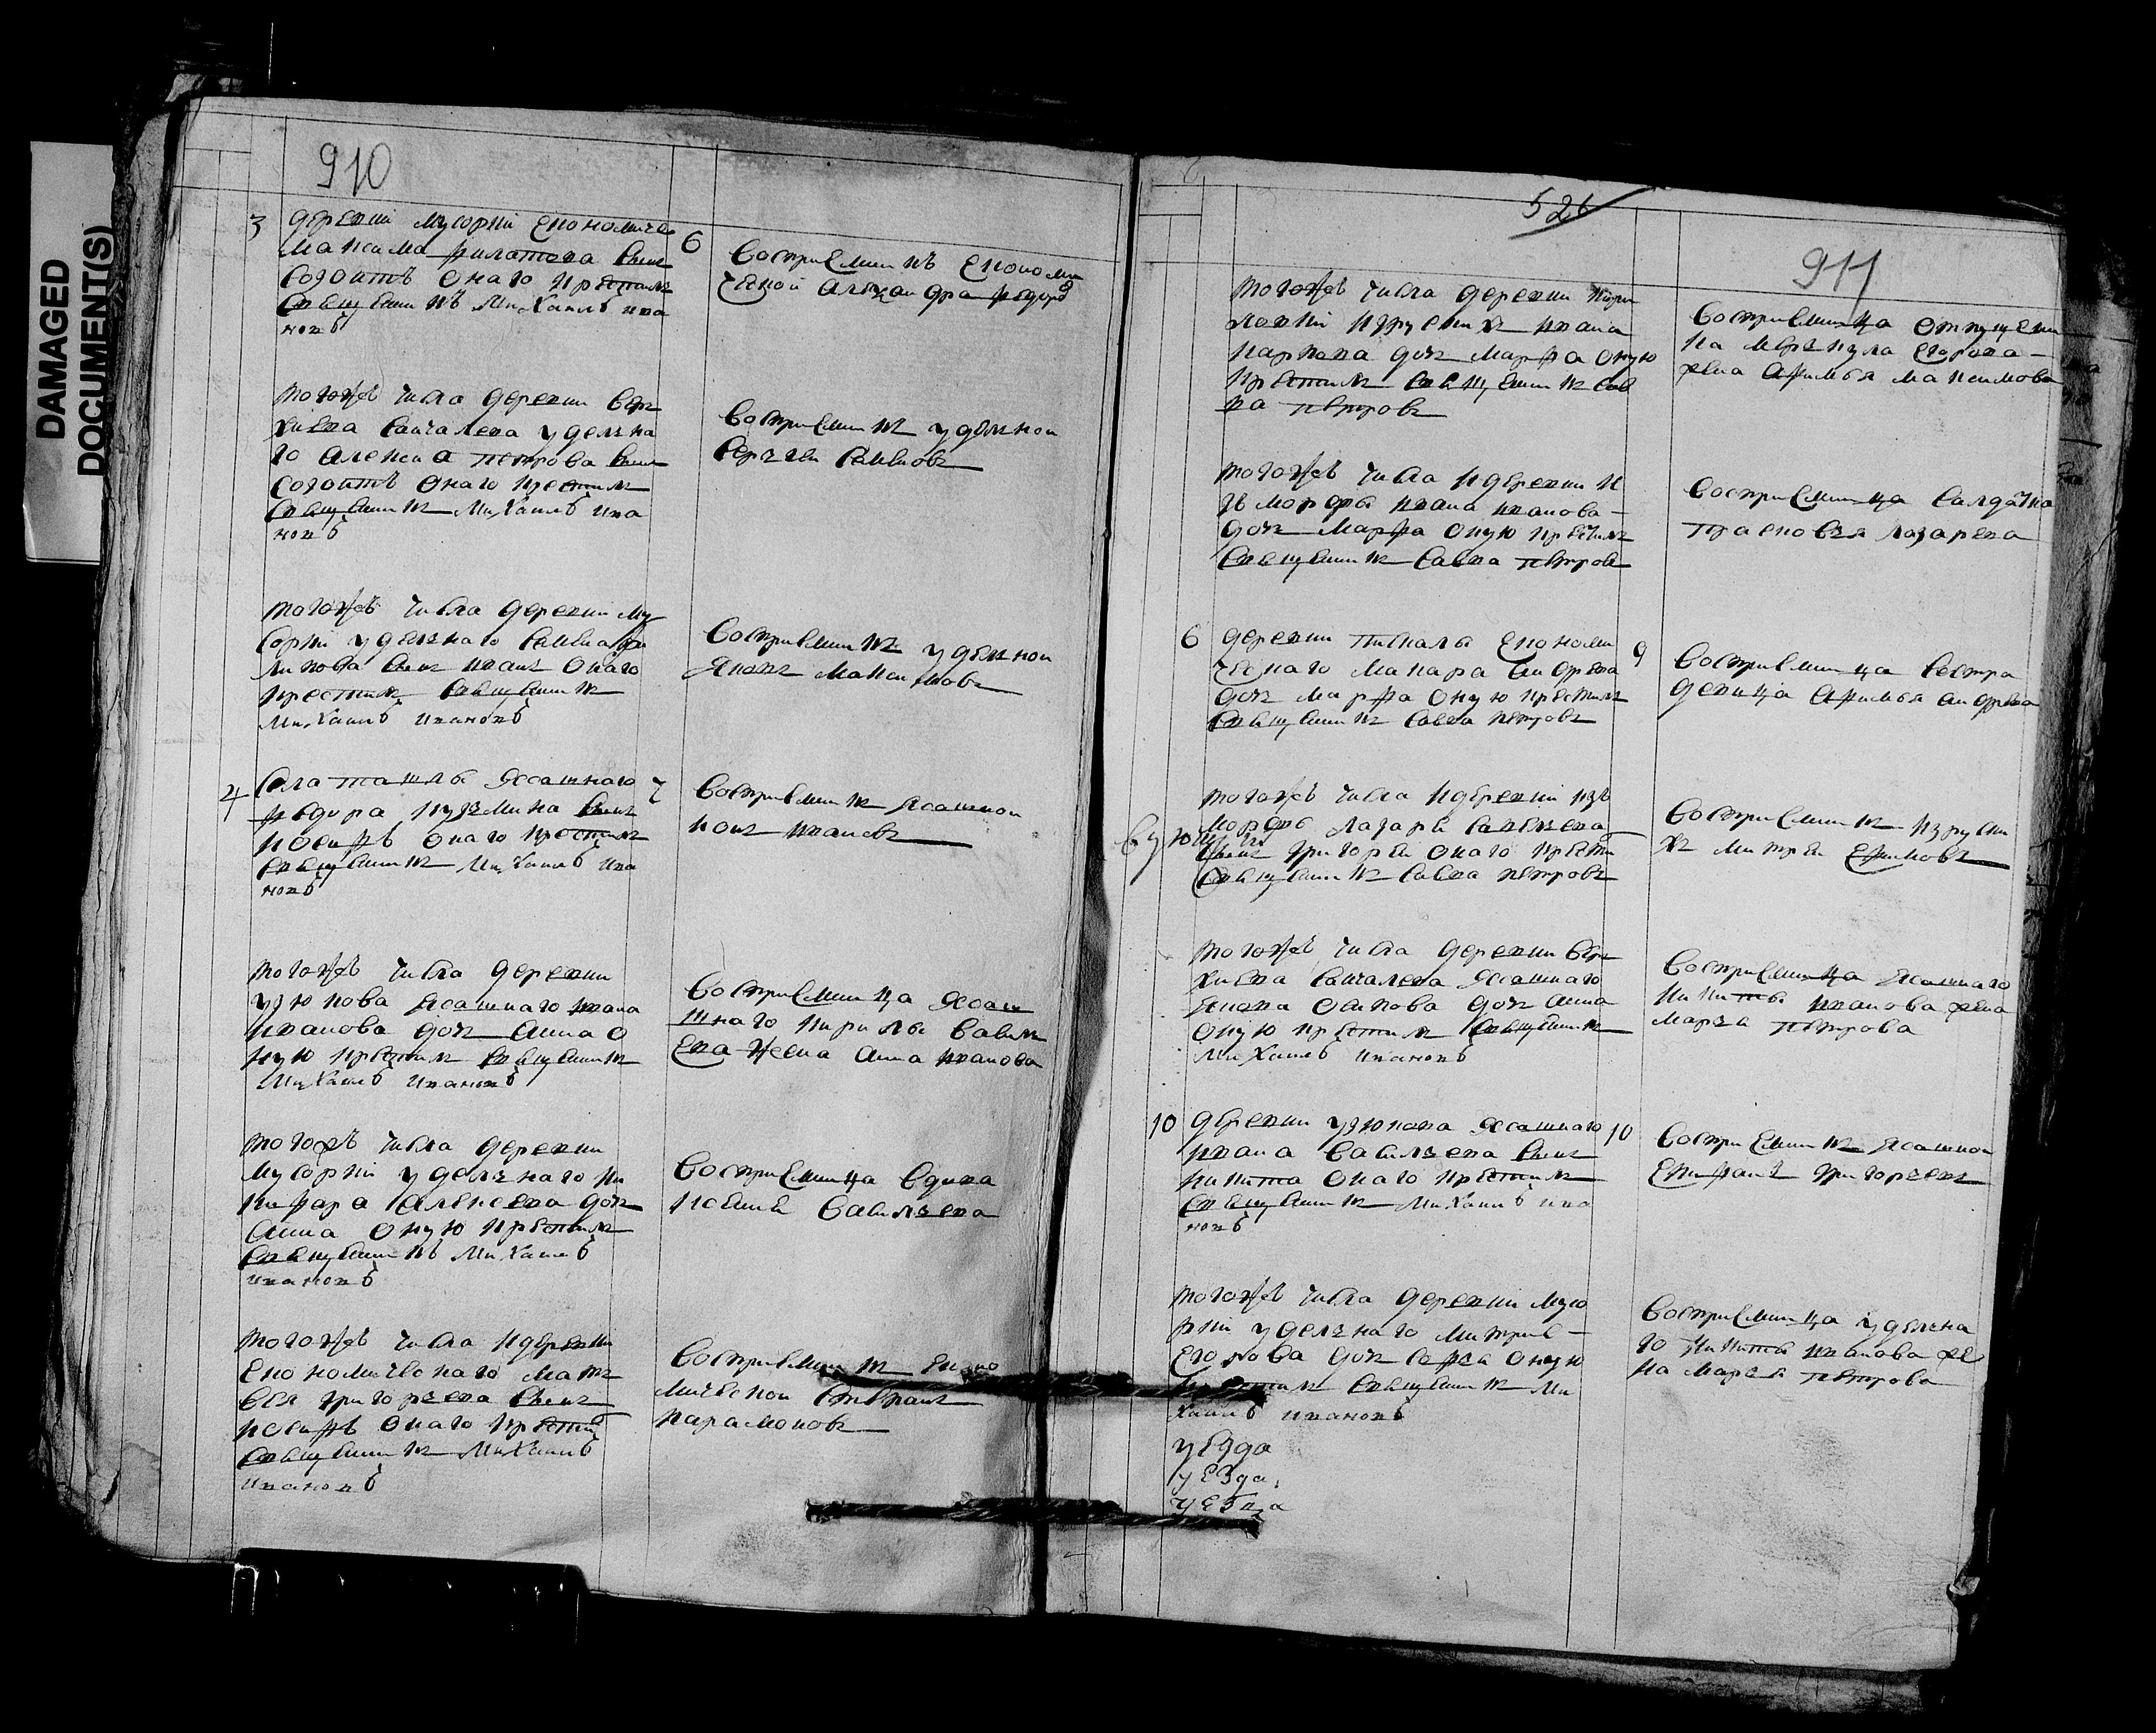 DAMAGED
DOCUMENT(S)
910
3
деревни мусорки економиче
максима филатова сынъ
созонтъ онаго крестилъ
священникъ михаилъ ива
новъ
6
восприемникъ економи
ческой александра федоро
тогожъ числа деревни вер
хнева санчалева уделна
го алексиа петрова сынъ
созонтъ онаго крестилъ
священникъ михаилъ ива
новъ
восприемникъ уделной
сергеи семенов
тогожъ числа деревни му
сорки уделнаго семена фи
липова сынъ иванъ онаго
крестилъ священникъ
михаилъ ивановъ
восприемникъ уделной
яковъ максимовъ
4
села ташлы ясашнаго
федора кузмина сынъ
иосифъ онаго крестилъ
священникъ михаилъ ива
новъ
7
восприемникъ ясашной
иванов
тогожъ числа деревни
узюкова ясашнаго ивана
иванова дочь анна о
ную крестилъ священникъ
михаилъ ивановъ
восприемница ясаш
шнаго кирилы савиль
ева жена анна иванова
тогожъ числа деревни
мусорки уделнаго ни
кифара алексеева дочь
анна оную крестилъ
священникъ михаилъ
ивановъ
восприемница вдова
ксения савильева
тогожъ числа и деревни
економическаго матв
вея григорьева сынъ
иосифъ онаго крестил
священникъ михаилъ
ивановъ
восприемникъ еконо
мической
парамоновъ
526
911
тогожъ числа деревни кири
ловки изруских ивана
карпова дочь марфа оную
крестилъ священникъ сав
ва петровъ
восприемница отпущени
на меркула егорова
жена афимья максимова
тогожъ числа и деревни и
зъ мордвы ивана иванова
дочь марфа оную крестилъ
священникъ савва петров
восприемница салдатка
прасковья лазарева
6
деревни пискалы економи
ческаго макара андреева
дочь марфа оную крестилъ
священникъ савва петровъ
9
восприемница сестра
девица афимья андреева
тогожъ числа и деревни изъ
мордвы лазаря савельева
сынъ григореи онаго крести
священникъ савва петровъ
восприемникъ изруски
х митреи ефимовъ
тогожъ числа деревни вер
хнева санчалева ясашнаго
якова осипова дочь анна
оную крестилъ священникъ
михаилъ ивановъ
восприемница ясашнаго
никиты иванова жена
марья петрова
10
деревни узюкова ясашнаго
ивана савильева сынъ
никита онаго крестилъ
священникъ михаилъ ива
новъ
10
восприемникъ ясашной
епифанъ григорьевъ
тогожъ числа деревни мусо
рки уделнаго митрие
егорова дочь софья оную
крестилъ священникъ ми
хаилъ ивановъ
восприемница уделна
го никиты иванова же
на марья петрова
уезда
уезда
уезда